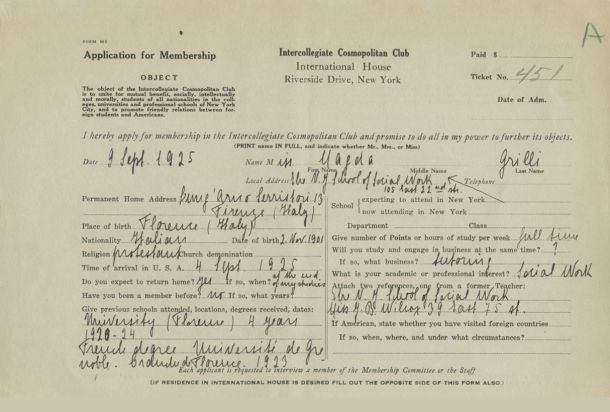 FORM M2
A
Application for Membership
Intercollegiate Cosmopolitan Club
International House
Riverside Drive, New York
Paid $
Ticket No. 451
Date of Adm.
OBJECT
The object of the Intercollegiate Cosmopolitan Club
is to unite for mutual benefit, socially, intellectually
and morally, students of all nationalities in the coll-
eges, universities and professional schools of New York
City, and to promote friendly relations between for-
eign students and Americans.
I hereby apply for membership in the Intercollegiate Cosmopolitan Club and promise to do all in my power to further its objects.
(PRINT name IN FULL, and indicate whether Mr., Mrs., or Miss)
Date 9 Sept. 1925
Name Miss Magda Grilli
First Name Middle Name Last Name
Local Address The N.Y. School of Social Work Telephone
105 East 22nd st.
Permanent Home Address Lung'Arno Serristori 13
Firenze (Italy)
Place of birth Florence (Italy)
Nationality Italian Date of birth 2. Nov. 1901
Religion protestant Church demonination
Time of arrival in U. S. A. 4 Sept. 1925
Do you expect to return home? yes If so, when? at the end
of my studies
Have you been a member before? no If so, what years?
Give previous schools attended, locations, degrees received, dates:
University (Florence) 4 years
1920-24
French degree Université de Gre
noble. Florence. 1923
School
expecting to attend in New York
now attending in New York
Department Class
Give number of Points or hours of study per week full time
Will you study and engage in business at the same time? ?
If so, what business? tutoring
What is your academic or professional interest? Social Work
Attach two references, one from a former Teacher:
The N.Y. School of Social Work
Miss J. B. Wilcox 39 East 75 st.
If American, state whether you have visited foreign countries
If so, when, where, and under what circumstances?
Each applicant is requested to interview a member of the Membership Committee or the Staff
(IF RESIDENCE IN INTERNATIONAL HOUSE IS DESIRED FILL OUT THE OPPOSITE SIDE OF THIS FORM ALSO.)